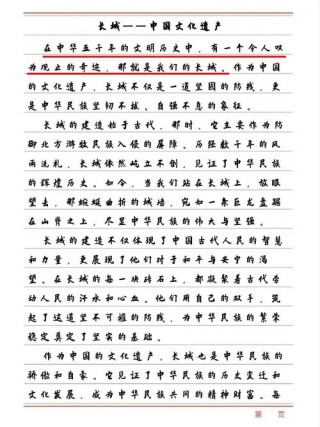 长城——中国文化遗产
在中华五千年的文明历史中，有一个令人叹
为观止的奇迹，那就是我们的长城。作为中国
的文化遗产，长城不仅是一道坚固的防线，更
是中华民族坚韧不拔、自强不息的象征。
长城的建造始于古代，那时，它主要作为防
御北方游牧民族入侵的屏障。历经数千年的风
雨洗礼，长城依然屹立不倒，见证了中华民族
的辉煌历史。如今，当我们站在长城上，放眼
望去，那蜿蜒曲折的城墙，宛如一条巨龙盘踞
在山脊之上，尽显中华民族的伟大与坚强。
长城的建造不仅体现了中国古代人民的智慧
和力量，更展现了他们对于和平与安宁的渴
望。在长城的每一块砖石上，都凝聚着古代劳
动人民的汗水和心血。他们用自己的双手，筑
起了这道坚不可摧的防线，为中华民族的繁荣
稳定奠定了坚实的基础。
作为中国的文化遗产，长城也是中华民族的
骄傲和自豪。它见证了中华民族的历史变迁和
文化发展，成为中华民族共同的精神财富。每
第 页